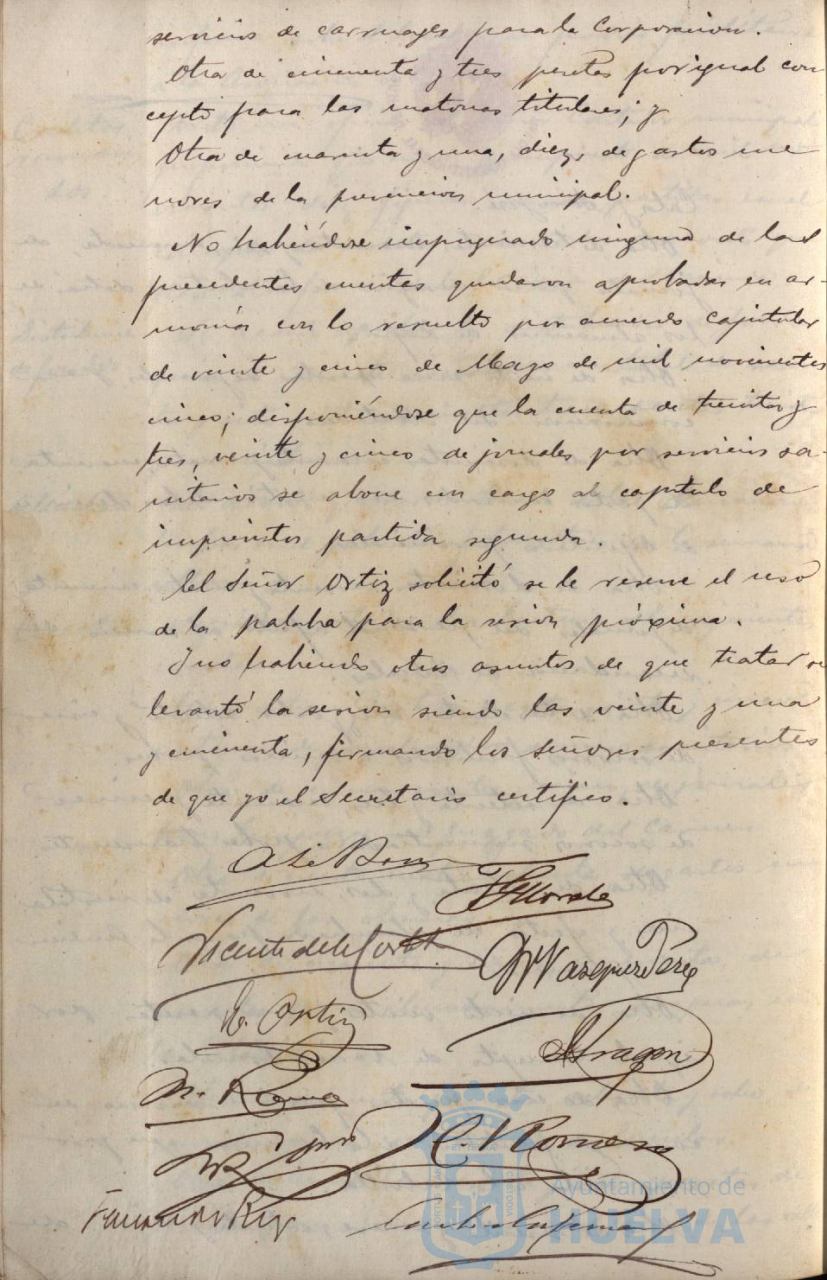 servicios de carruajes para la Corporacion.
Otra de cincuenta y tres pesetas por igual con
cepto para las matronas titulares; y
Otra de cuarenta y una, diez, de gastos me
nores de la prevencion municipal.
No habiéndose impugnado ninguna de las
precedentes cuentas quedaron aprobadas en ar-
monía con lo resuelto por acuerdo capitular
de veinte y cinco de Mayo de mil novecientos
cinco; disponiéndose que la cuenta de treinta y
tres, veinte y cinco de jornales por servicios sa-
nitarios se abone con cargo al capítulo de
imprevistos partida segunda.
El Señor Ortiz solicitó se le reserve el uso
de la palabra para la sesion próxima.
Y no habiendo otros asuntos de que tratar se
levantó la sesion siendo las veinte y una
y cincuenta, firmando los Señores presentes
de que yo el Secretario certifico.
Vicente de la Corte
Vazquez Perez
Ortiz
Aragon
Romero
Ayuntamiento de
HUELVA